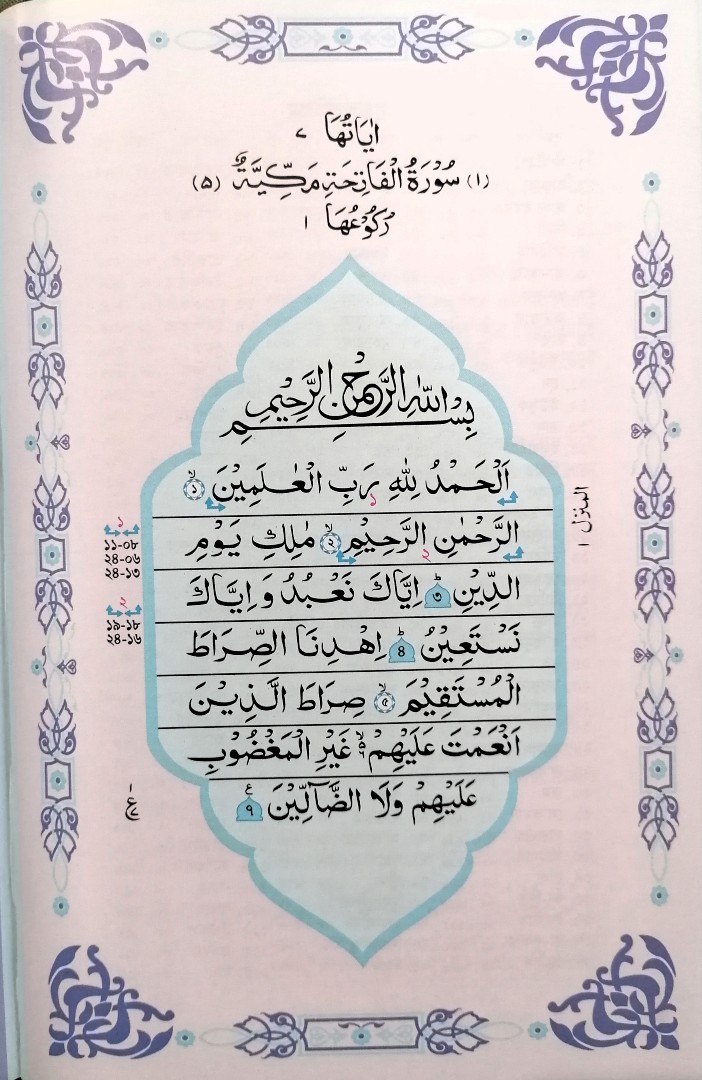 اٰيَاتُهَا ٧
(١) سُوْرَةُ الْفَاتِحَةِ مَكِّيَّةٌ (٥)
رُكُوْعُهَا ١
بِسْمِ اللّٰهِ الرَّحْمٰنِ الرَّحِيْمِ
اَلْحَمْدُ لِلّٰهِ رَبِّ الْعٰلَمِيْنَ ۙ ১
الرَّحْمٰنِ الرَّحِيْمِ ۙ ২ مٰلِكِ يَوْمِ
الدِّيْنِ ؕ ৩ اِيَّاكَ نَعْبُدُ وَ اِيَّاكَ
نَسْتَعِيْنُ ؕ ৪ اِهْدِنَا الصِّرَاطَ
الْمُسْتَقِيْمَ ۙ ৫ صِرَاطَ الَّذِيْنَ
اَنْعَمْتَ عَلَيْهِمْ ۙ غَيْرِ الْمَغْضُوْبِ
عَلَيْهِمْ وَلَا الضَّآلِّيْنَ ৭
المنزل ١
১
১১-০৮
২৪-০৬
২৪-১৩
২
১৯-১৮
২৪-১৬